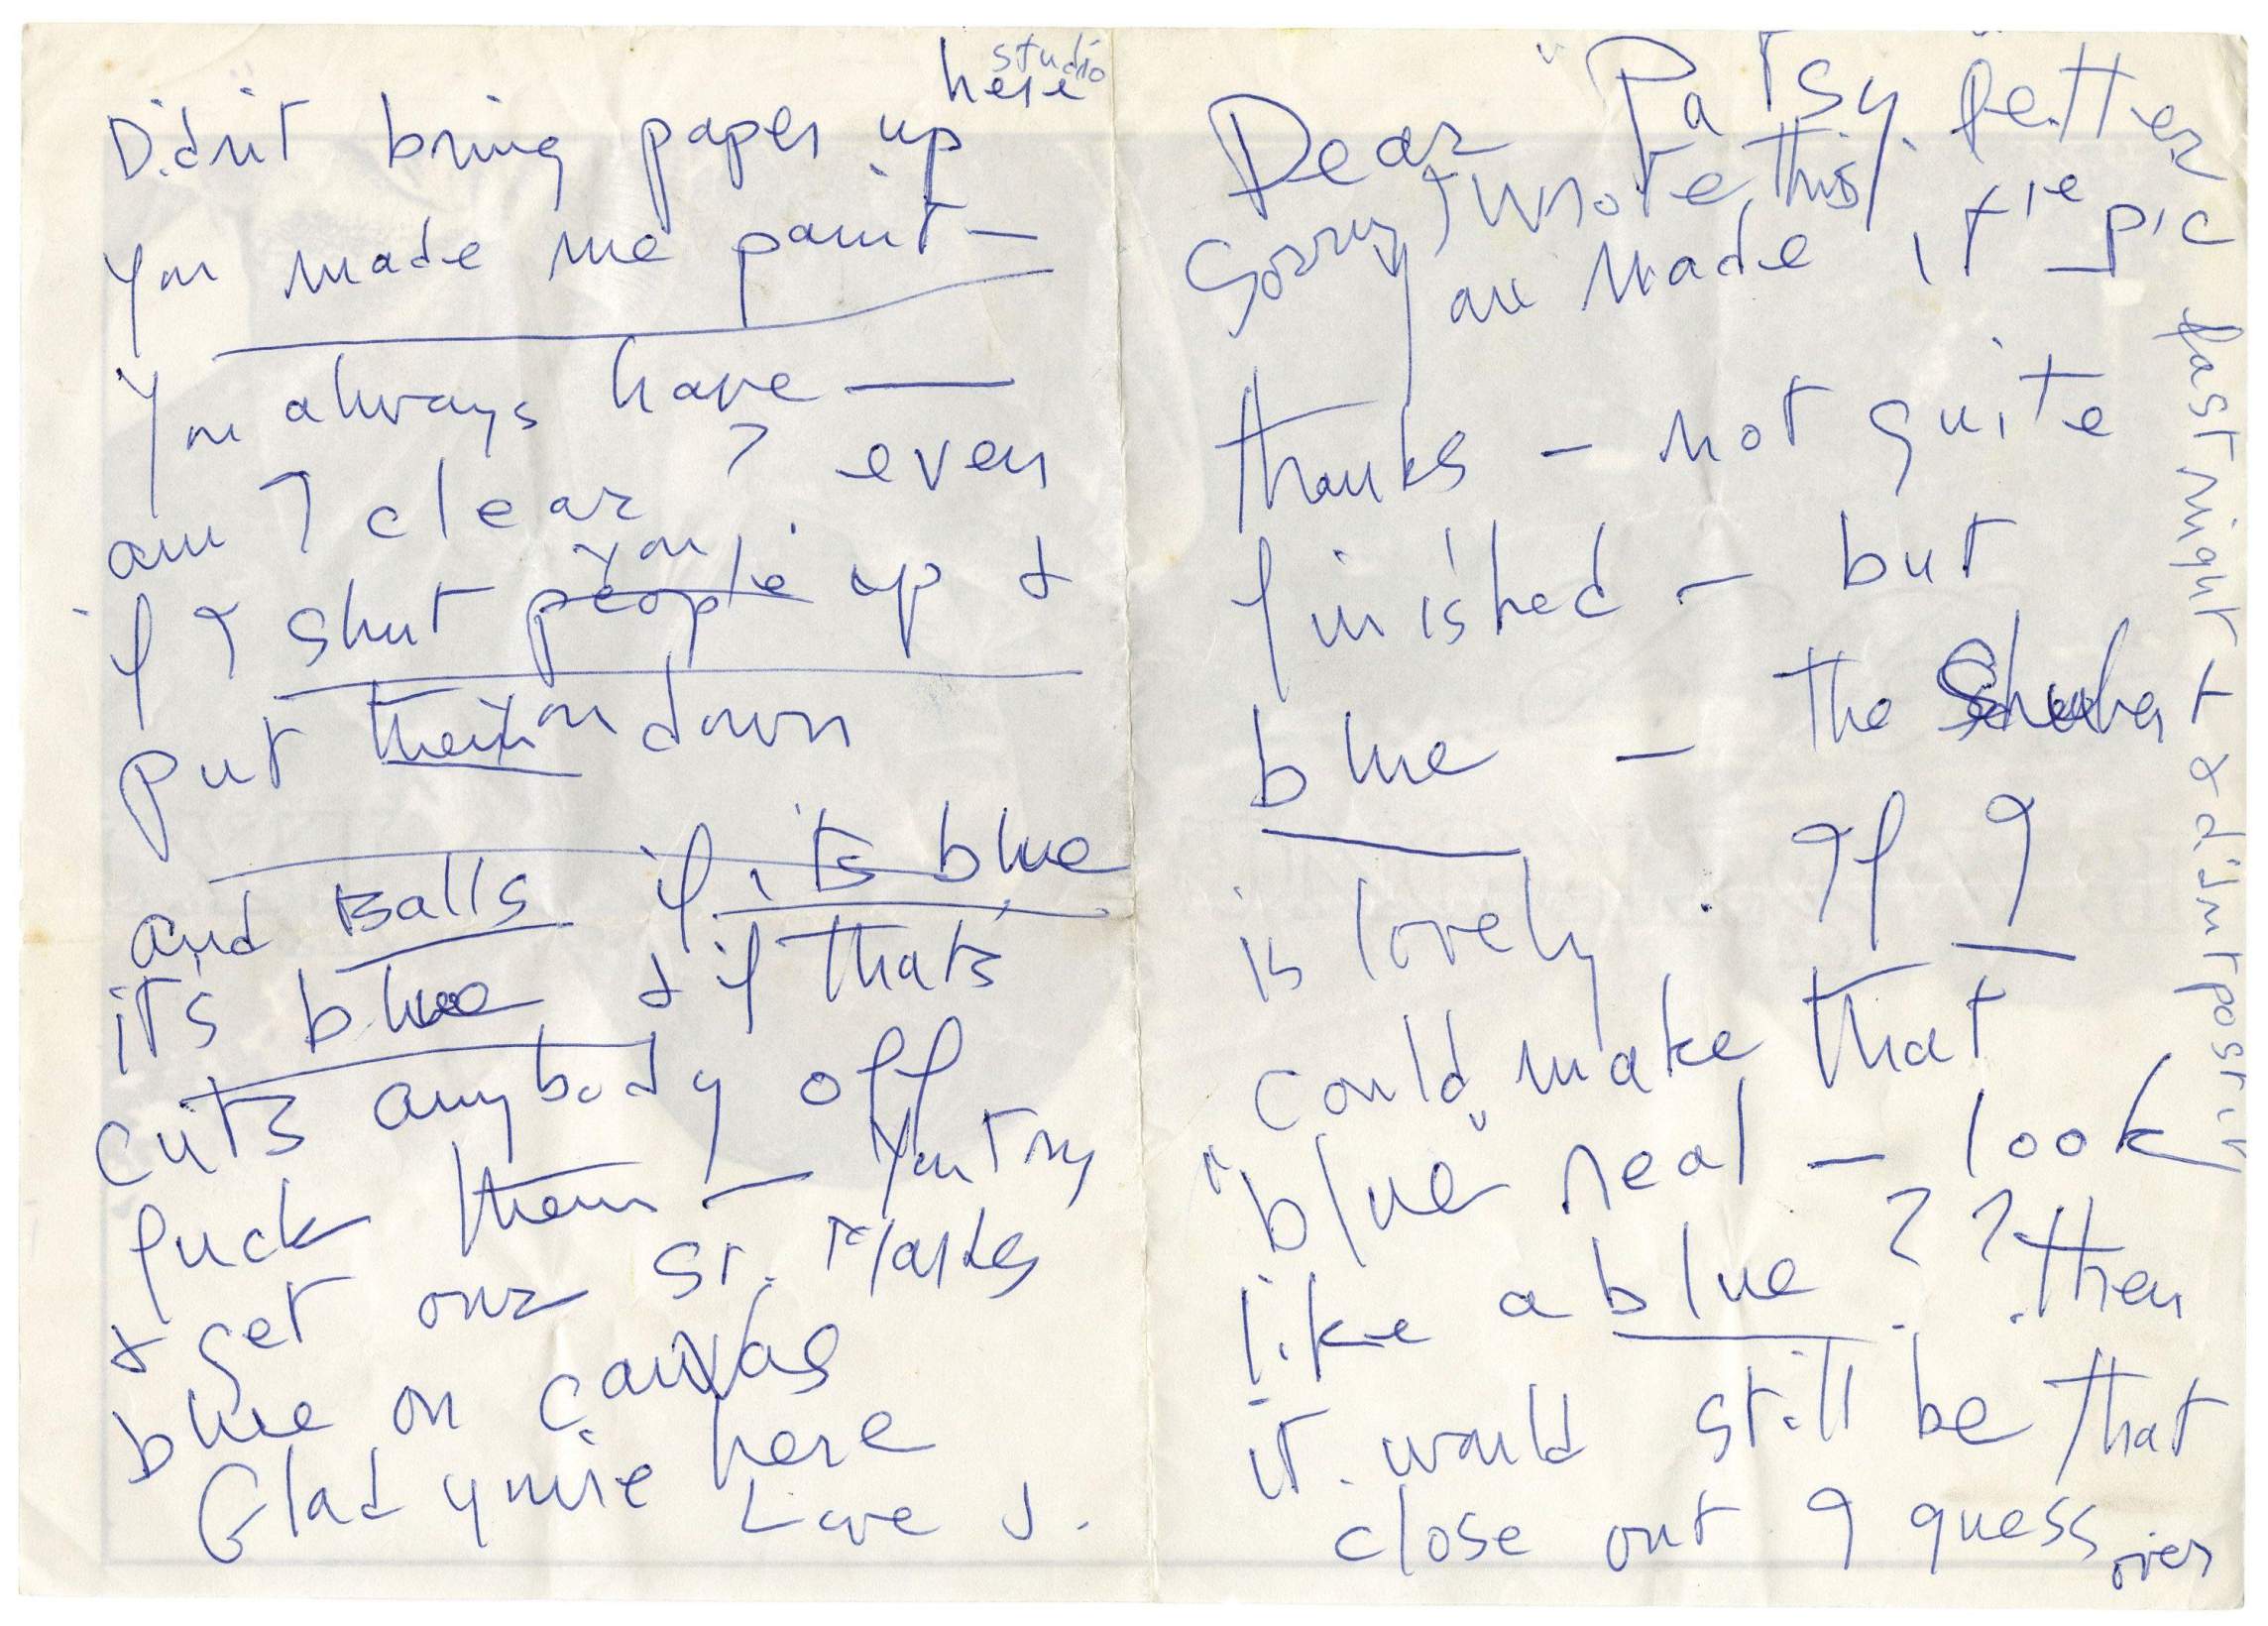 Dear "Patsy" letter
Sorry I wrote this
made it
thanks – not quite
finished – but
blue – the
is lovely. If I
could make that
"blue" real – look
like a blue?? then
it would still be that
close out I guess
over
last night &
studio
here
Didn't bring paper up
you made me paint –
You always have —
am I clear? even
you
if I shut people up &
put them you down
and Balls if its blue
it's blue & if thats
cuts anybody off
fuck them – You try
& get our St. Marks
blue on canvas
Glad you're here
Love J.